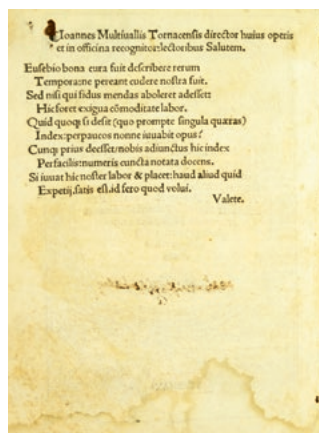 Ioannes Multiuallis Tornacensis director huius operis
et in officina recognitor: lectoribus Salutem.
Eusebio bona cura fuit describere rerum
Tempora: ne pereant cudere nostra fuit.
Sed nisi qui fidus mendas aboleret adesset:
Hic foret exigua cōmoditate labor.
Quid quoqꝫ si desit (quo prompte singula quæras)
Index: per paucos nonne iuuabit opus?
Cunqꝫ prius deesset: nobis adiunctus hic index
Perfacilis: numeris cuncta notata docens.
Si iuuat hic noster labor & placet: haud aliud quid
Expetij. satis est. id sero quod volui.
Valete.